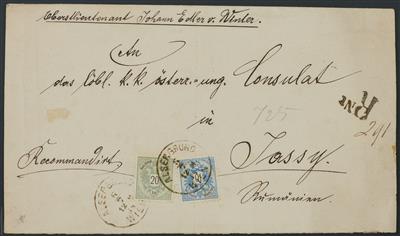 Oberstlieutenant Johann Edler v. Winter.
An
das löbl. k. k. österr.-ung. Consulat
in
Jassy.
Rumänien.
Recommandirt
725
R
291
ALSERGRUND
WIEN
20